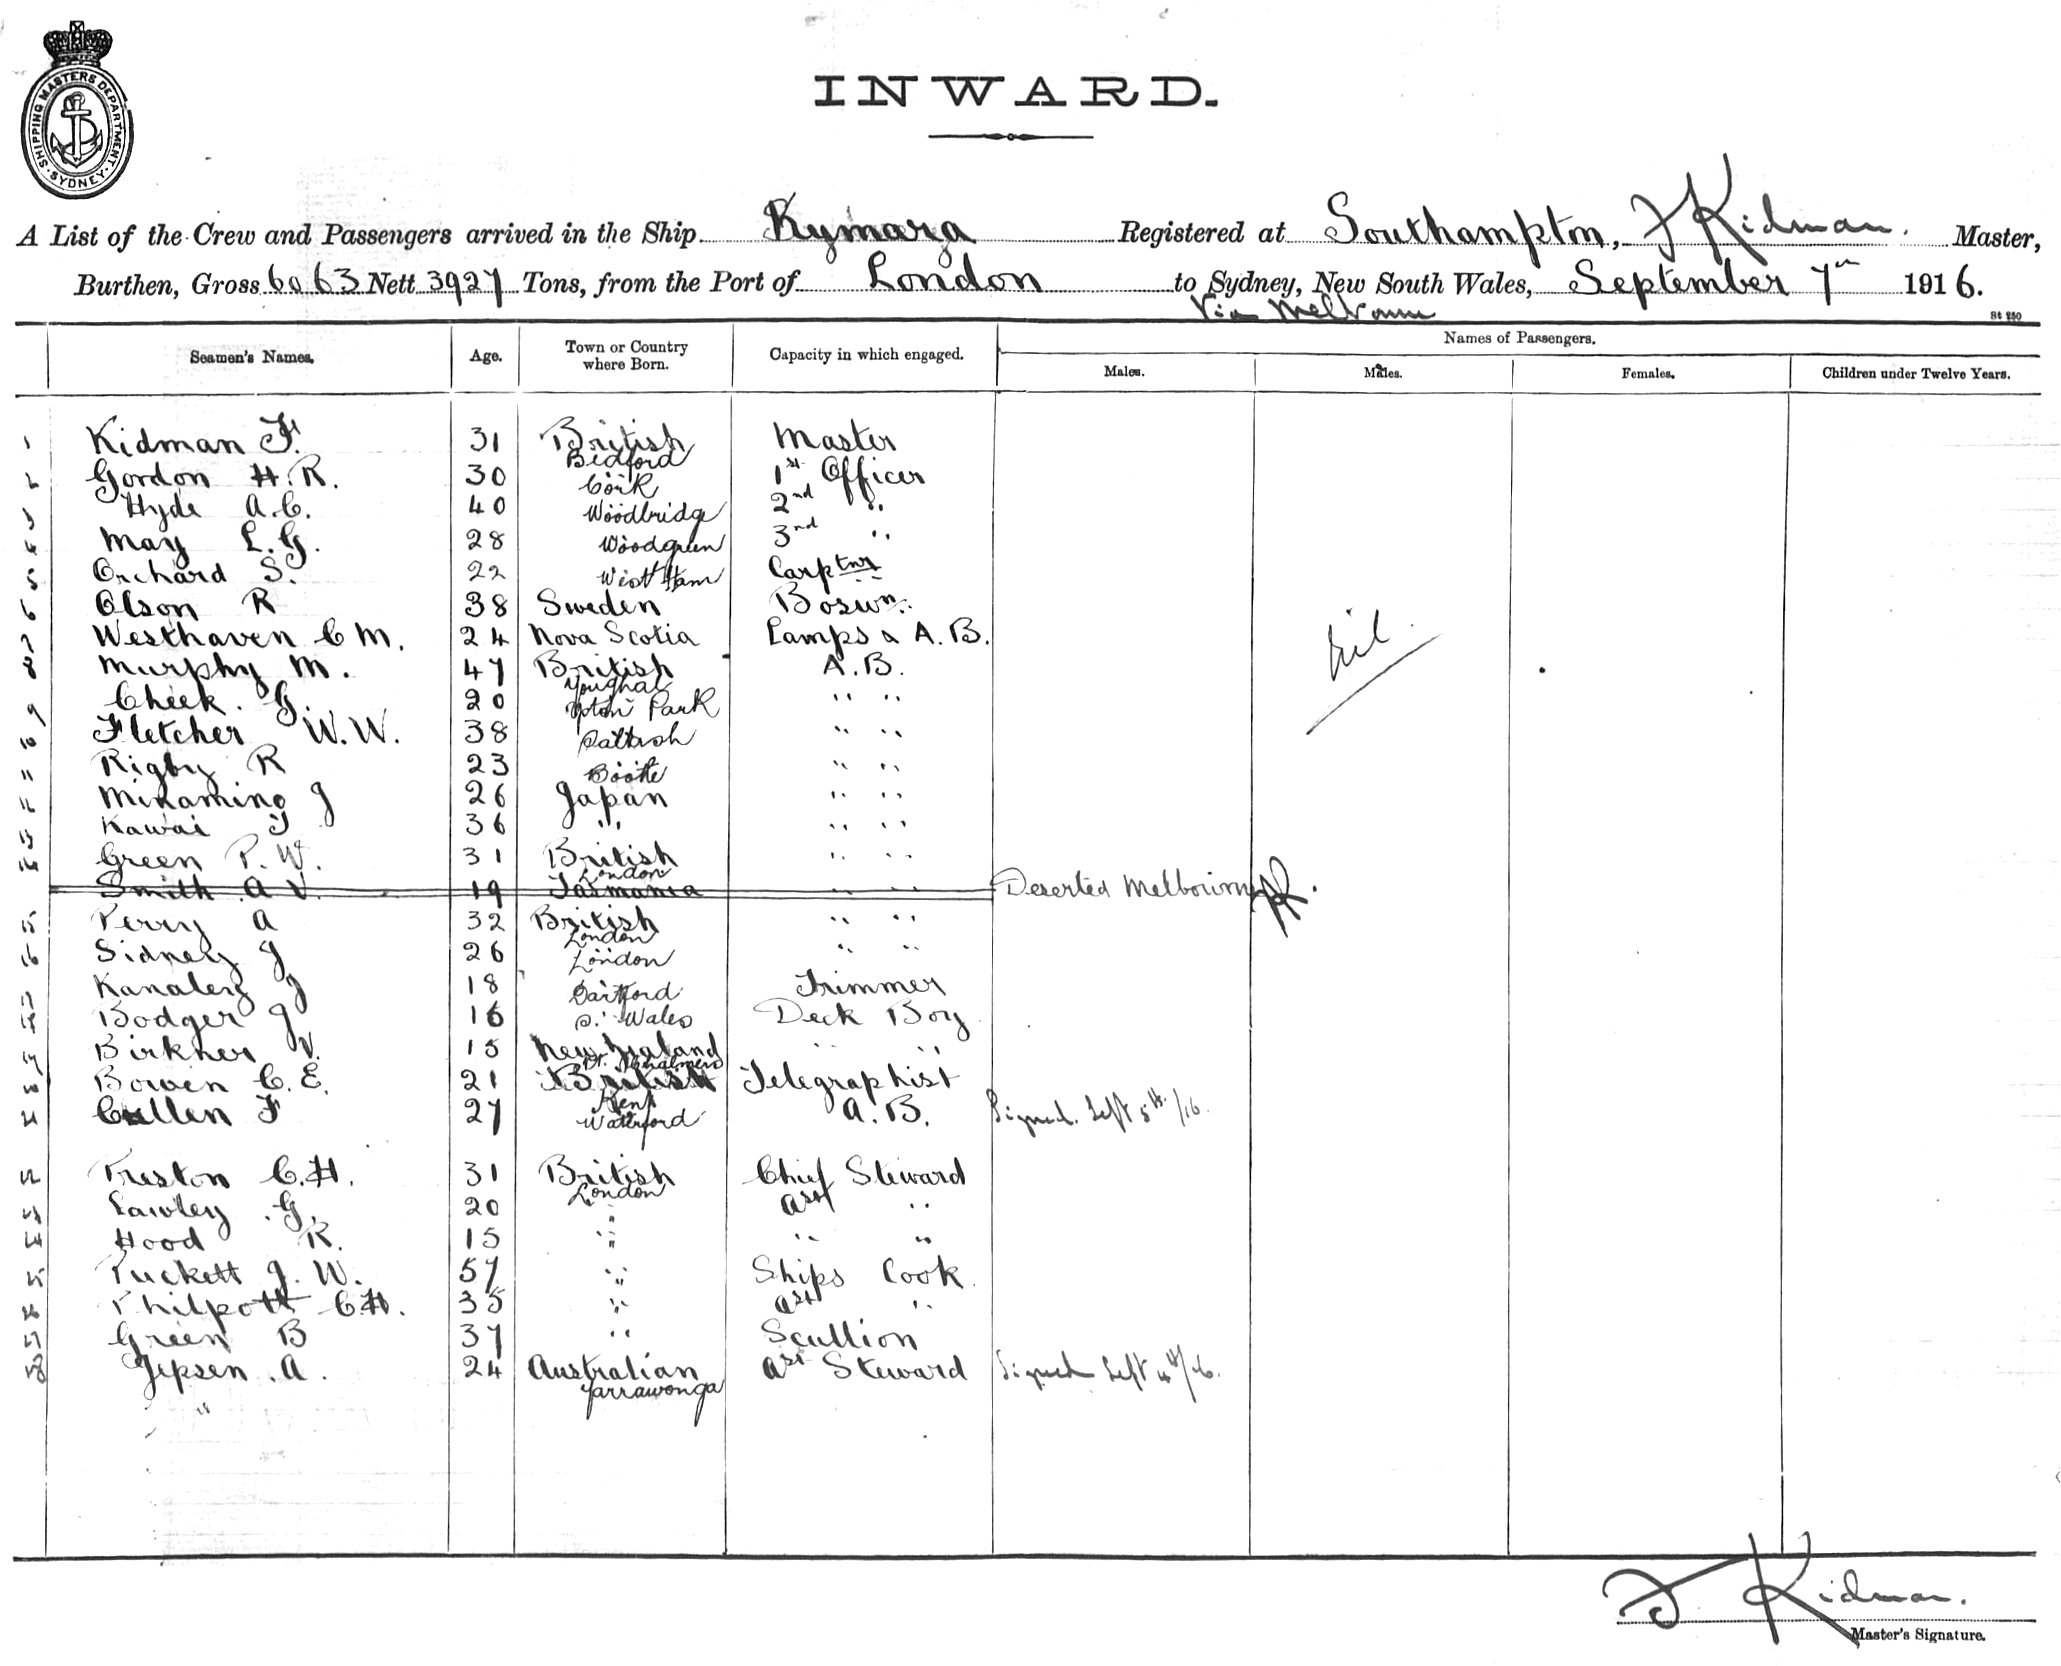 SHIPPING MASTERS DEPARTMENT
SYDNEY
INWARD.
A List of the Crew and Passengers arrived in the Ship Kymara Registered at Southampton, F Kidman. Master,
Burthen, Gross 6063 Nett 3927 Tons, from the Port of London to Sydney, New South Wales, September 7th 1916.
Via Melbourne
St 250
Seamen's Names. Age. Town or Country where Born. Capacity in which engaged. Names of Passengers.
Males. Males. Females. Children under Twelve Years.
1 Kidman F. 31 British Bedford Master
2 Gordon H.R. 30 Cork 1st Officer
3 Hyde A.C. 40 Woodbridge 2nd "
4 May L.G. 28 Woodgreen 3rd "
5 Orchard S. 22 West Ham Carptnr
6 Olson R 38 Sweden Boswn
7 Westhaven C M. 24 Nova Scotia Lamps & A.B.
8 Murphy M. 47 British Youghal A.B.
9 Cheek. G. 20 Upton Park " "
10 Fletcher W.W. 38 " "
11 Rigby R 23 Bootle " "
12 Minamino J 26 Japan " "
13 Kawai 36 " " "
14 Green P.W. 31 British London " "
Smith A V. 19 Tasmania " " Deserted Melbourne
15 Perry A 32 British London " "
16 Sidney J 26 London " "
17 Kanaley J 18 Dartford Trimmer
18 Bodger J 16 S. Wales Deck Boy
19 Birkner V. 15 New Zealand Pt. Chalmers " "
20 Bowen C.E. 21 British Kent Telegraphist
21 Cullen F 27 Waterford A.B. Signed Sept 5th/16.
22 Preston C.H. 31 British London Chief Steward
23 Lawley G. 20 " Asst "
24 Hood R. 15 " " "
25 Puckett J.W. 57 " Ships Cook
26 Philpott C.H. 35 " Asst "
27 Green B 37 " Scullion
28 Jepsen A. 24 Australian Yarrawonga Asst Steward Signed Sept 4th/16.
"
Nil
F Kidman.
Master's Signature.